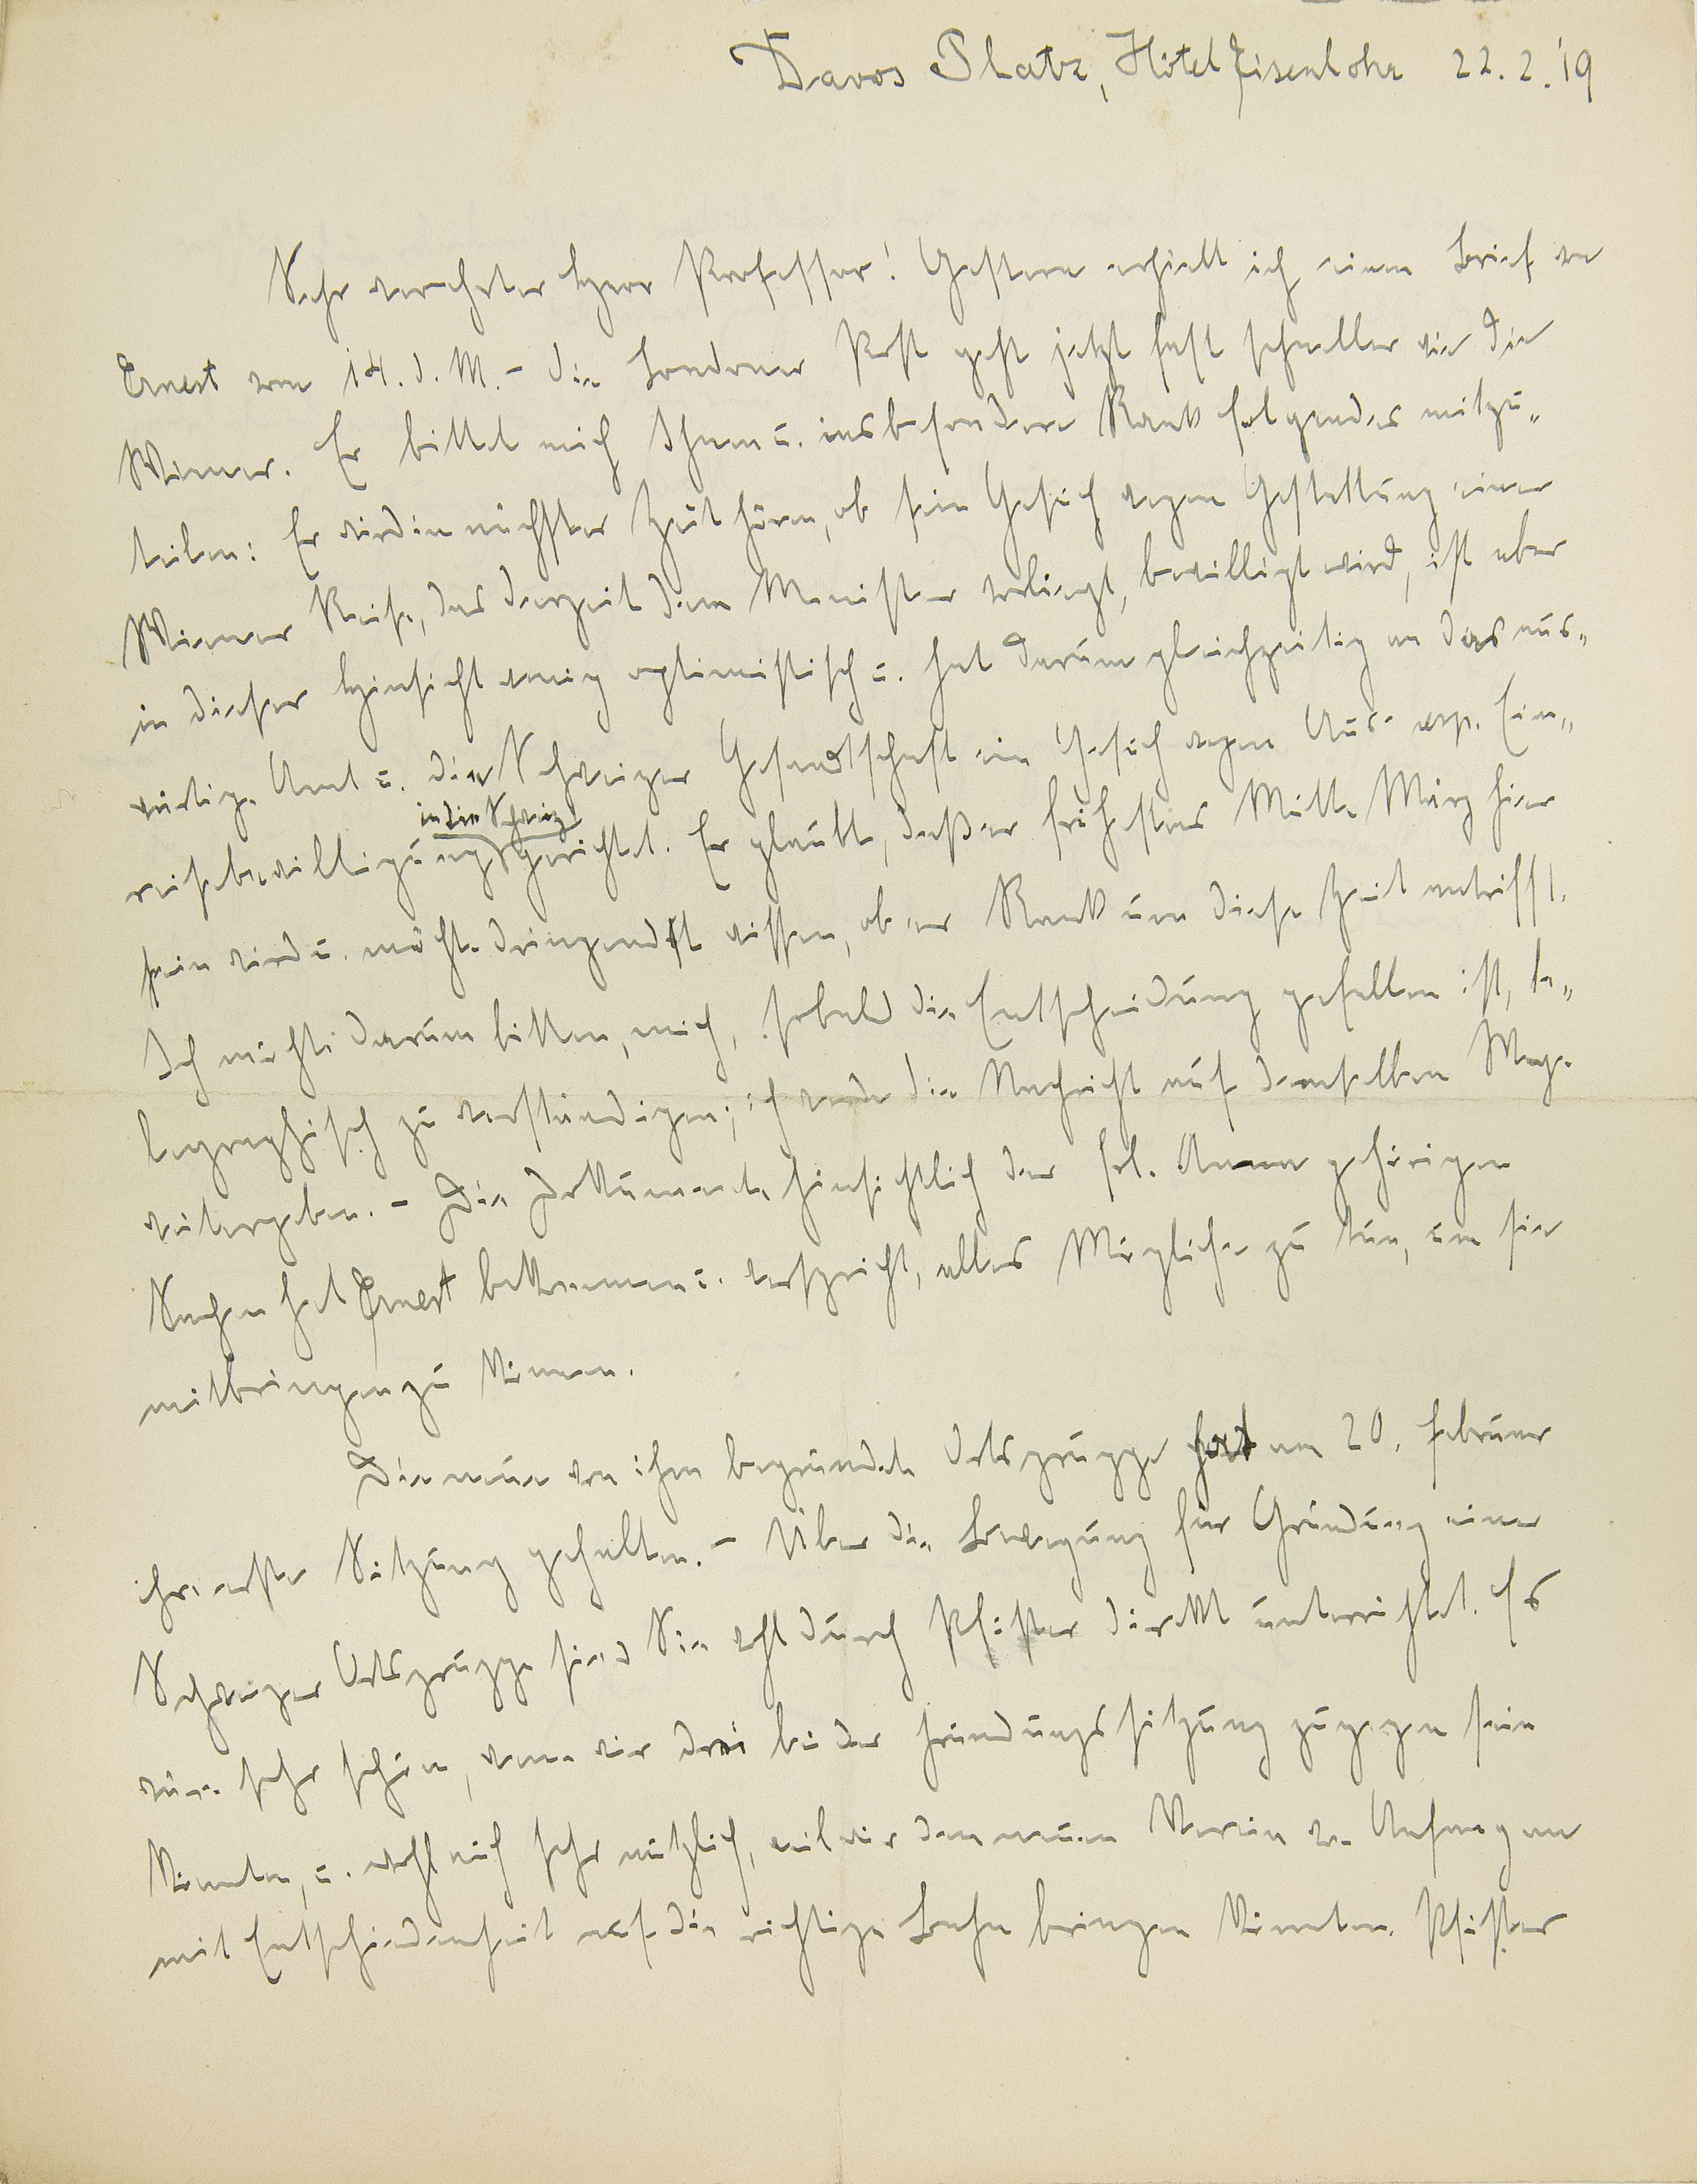 Davos Platz, Hôtel Eisenlohr 22.2.'19
Sehr verehrter Herr Professor! Gestern erhielt ich einen Brief von
Ernest vom 14. d. M. – die Londoner Post geht jetzt fast schneller wie die
Wiener. Er bittet mich Ihnen u. insbesondere Rank folgendes mitzu-
teilen: Er wird in nächster Zeit hören, ob sein Gesuch wegen Gestattung einer
Wiener Reise, das derzeit dem Minister vorliegt, bewilligt wird, ist aber
in dieser Hinsicht wenig optimistisch u. hat darum gleichzeitig an das aus-
wärtige Amt u. die Schweizer Gesandtschaft ein Gesuch wegen Aus- resp. Ein-
in die Schweiz
reisebewilligung gerichtet. Er glaubt, daß er frühestens Mitte März hier
sein wird u. möchte dringendst wissen, ob er Rank um diese Zeit antrifft.
Ich möchte darum bitten, mich, sobald die Entscheidung gefallen ist, te-
legraphisch zu verständigen; ich werde die Nachricht auf demselben Wege
weitergeben. – Die Dokumente hinsichtlich der Frl. Anna gehörigen
Sachen hat Ernest bekommen u. verspricht, alles Mögliche zu tun, um sie
mitbringen zu können.
Die neue von ihm begründete Ortsgruppe hat am 20. Februar
ihre erste Sitzung gehalten. – Über die Bewegung für Gründung einer
Schweizer Ortsgruppe sind Sie wohl durch Pfister direkt unterrichtet. Es
wäre sehr schön, wenn wir drei bei der Gründungssitzung zugegen sein
könnten, u. wohl auch sehr nützlich, weil wir den neuen Verein von Anfang an
mit Entschiedenheit auf die richtige Bahn bringen könnten. Pfister